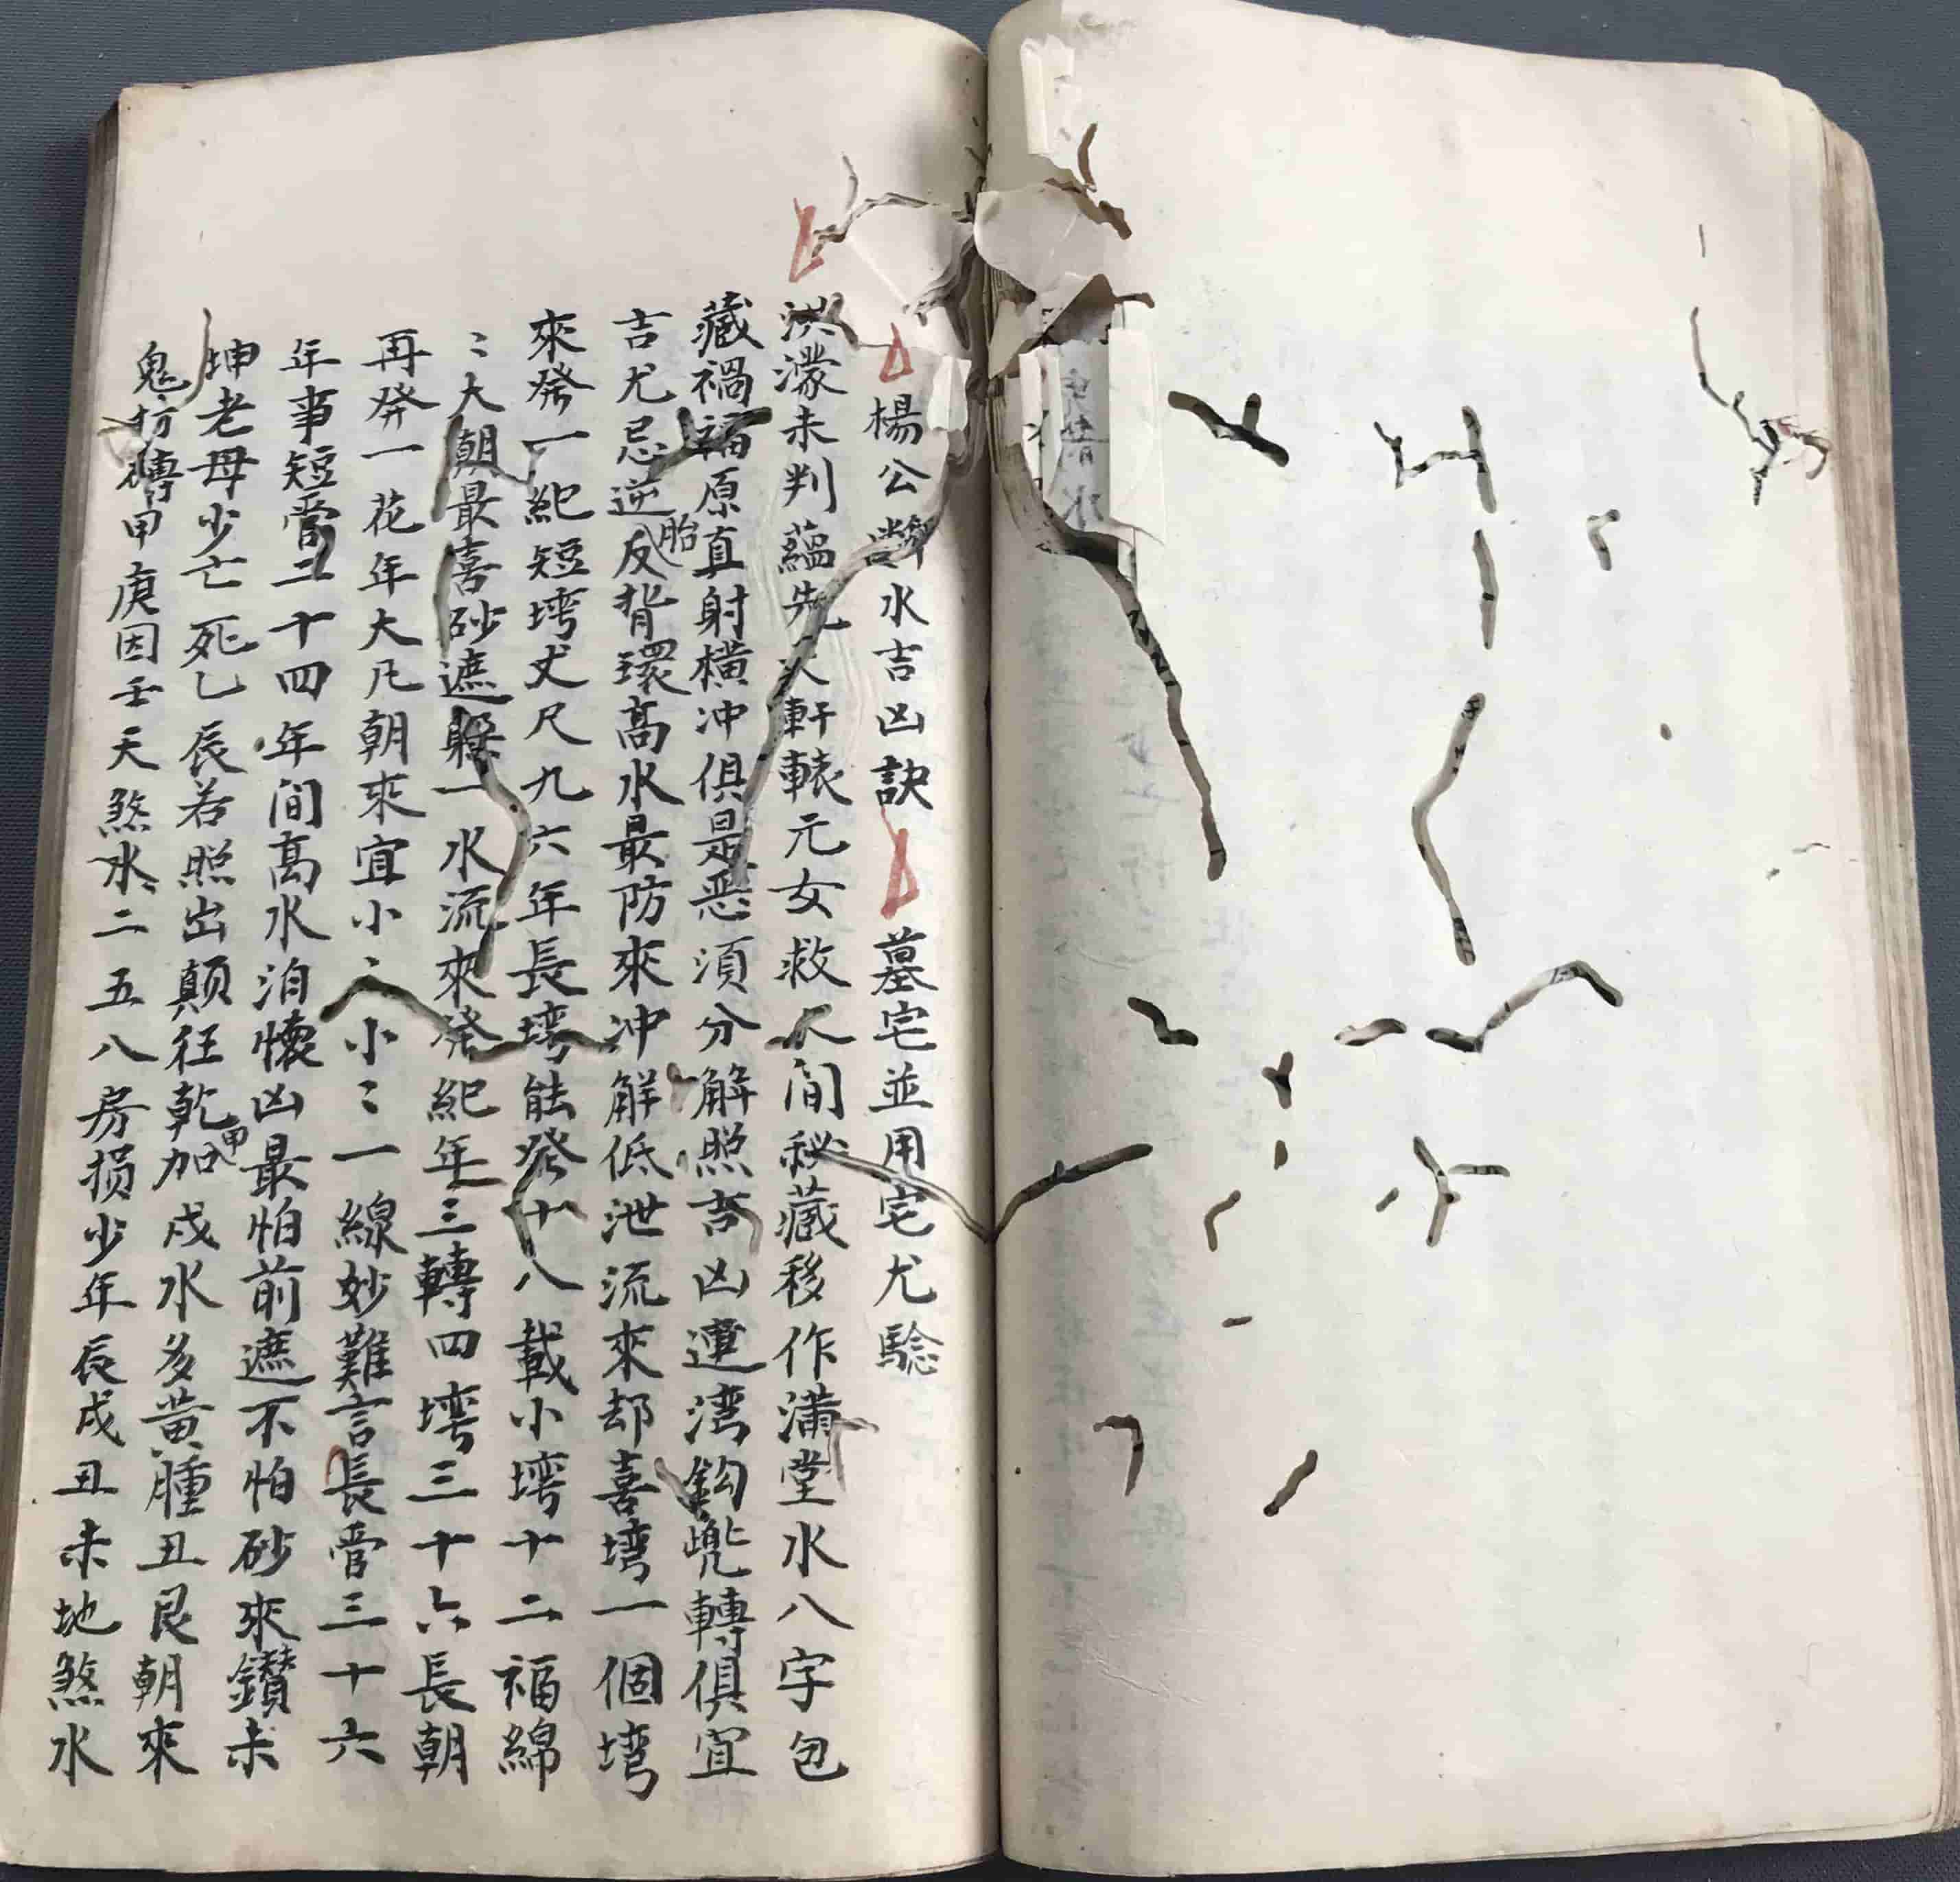 楊公斷水吉凶訣 墓宅並用宅尤騐
洪濛未判蘊先天軒轅元女救人间秘藏移作滿堂水八字包
藏禍福原真射橫冲俱是恶須分解照吉凶連湾鈎兠轉俱宜
吉尤忌逆反胎背環高水最防來冲解低泄流來却喜塆一個塆
來發一紀短塆丈尺九六年長塆能發十八載小塆十二福綿
〻大朝最喜砂遮一水流來發紀年三轉四塆三十六長朝
再發一花年大凡朝來宜小〻小〻一線妙難言長管三十六
年事短管二十四年间高水泊懷凶最怕前遮不怕砂來鑽未
坤老母少亡死乙辰若照出顛狂乾甲加戍水多黄腫丑艮朝來
鬼甲庚因壬天煞水〻二五八房损少年辰戍丑未地煞水